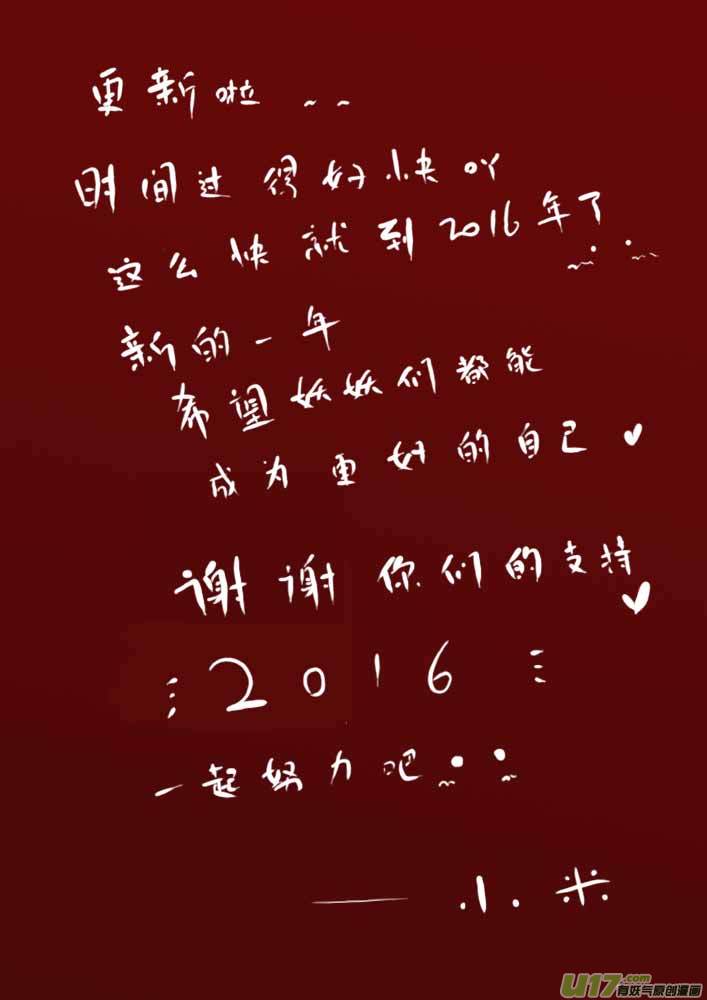 更新啦~~
时间过得好快吖
这么快就到2016年了
新的一年
希望妖妖们都能
成为更好的自己♥
谢谢你们的支持♥
2016
一起努力吧
——小米
U17.com
有妖气原创漫画